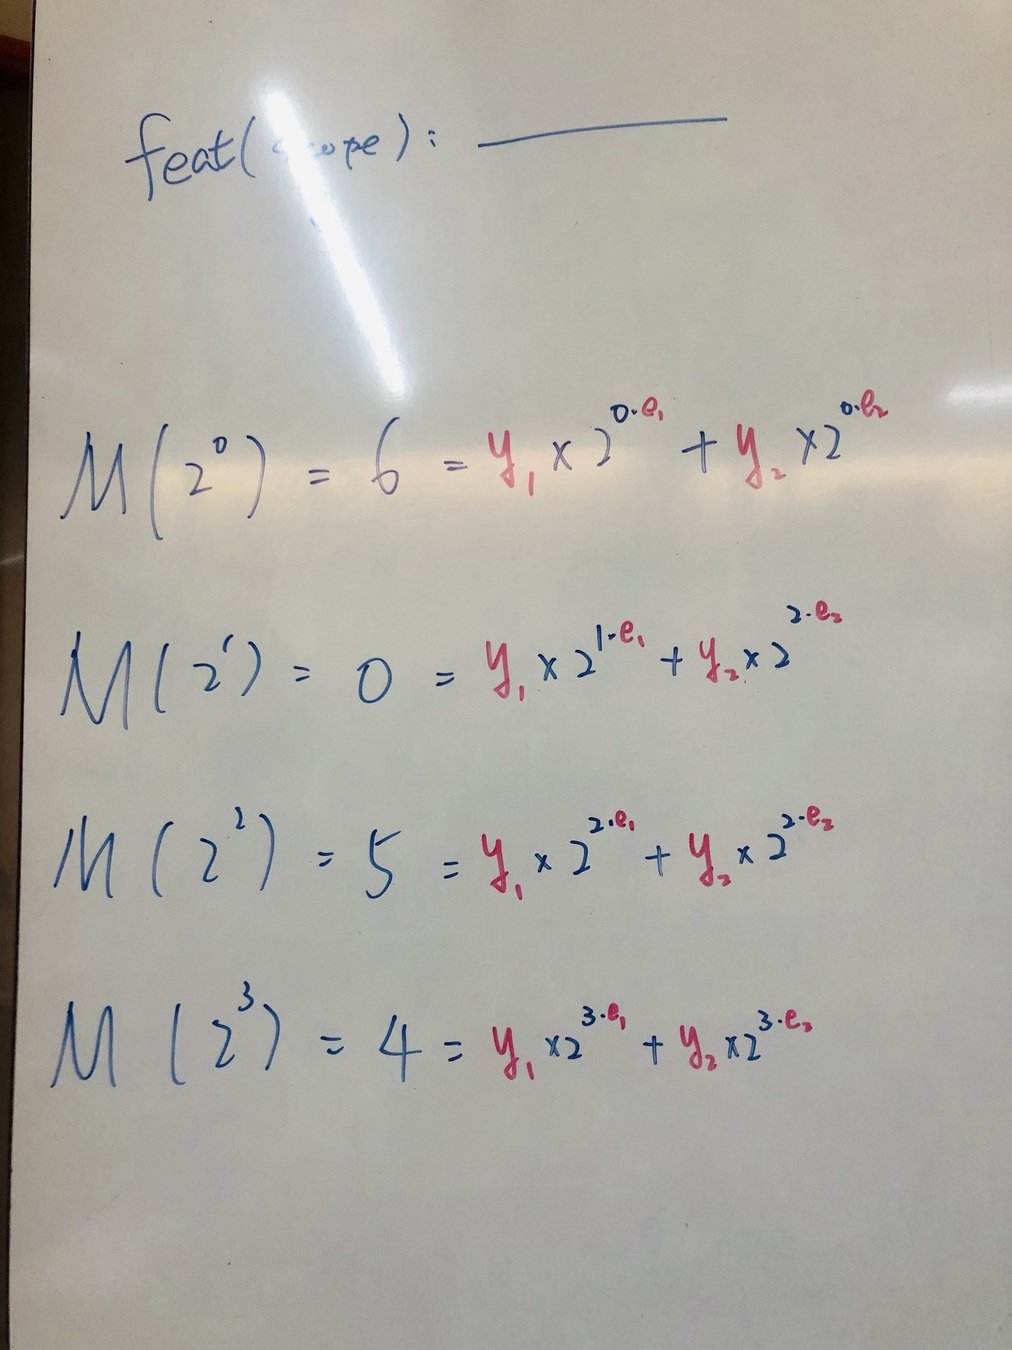 feat(scope): ______
M(2⁰) = 6 = y₁ × 2^(0·e₁) + y₂ × 2^(0·e₂)
M(2¹) = 0 = y₁ × 2^(1·e₁) + y₂ × 2^(2·e₂)
M(2²) = 5 = y₁ × 2^(2·e₁) + y₂ × 2^(2·e₂)
M(2³) = 4 = y₁ × 2^(3·e₁) + y₂ × 2^(3·e₂)